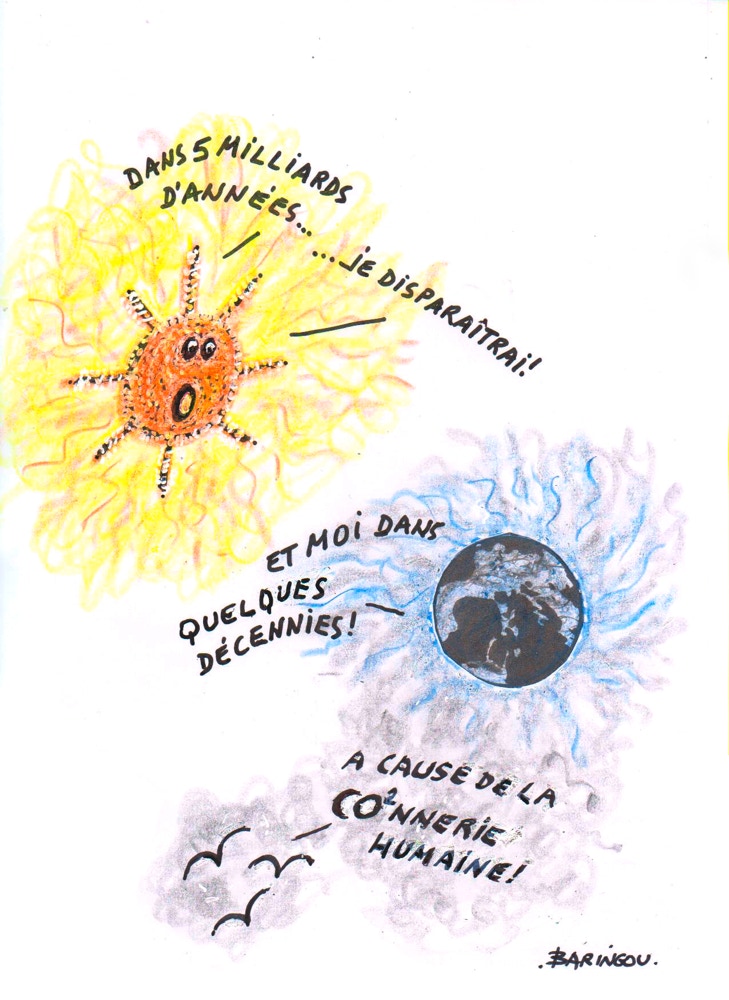 DANS 5 MILLIARDS
D'ANNÉES...
....JE DISPARAÎTRAI!
ET MOI DANS
QUELQUES
DÉCENNIES!
A CAUSE DE LA
CO²NNERIE
HUMAINE!
.BARINGOU.